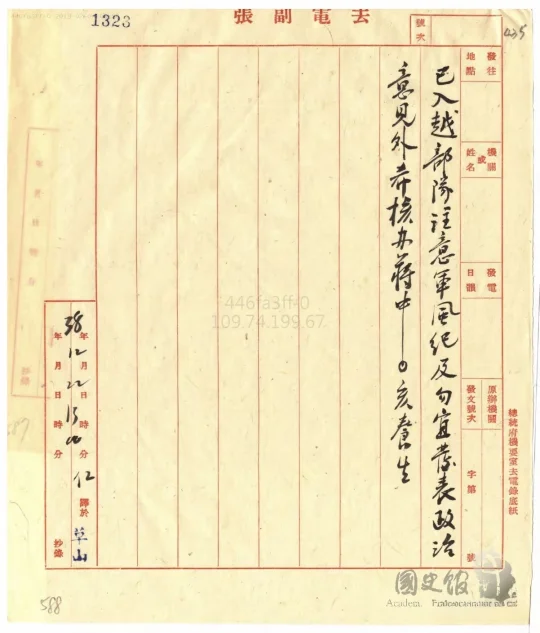 1323
去電副張
435
號次
發往地點
機關或姓名
發電日韻
原辦機關發文號次
字第 號
總統府機要室去電錄底紙
已入越部隊注意軍風紀及勿宜發表政治
意見外弄核办蔣中一〇亥養生
446fa3ff-0
109.74.199.67
年 月 日 時 分
38 12 22 15 00 仁 譯於 草山
年 月 日 時 分 抄錄
588
587
國史館